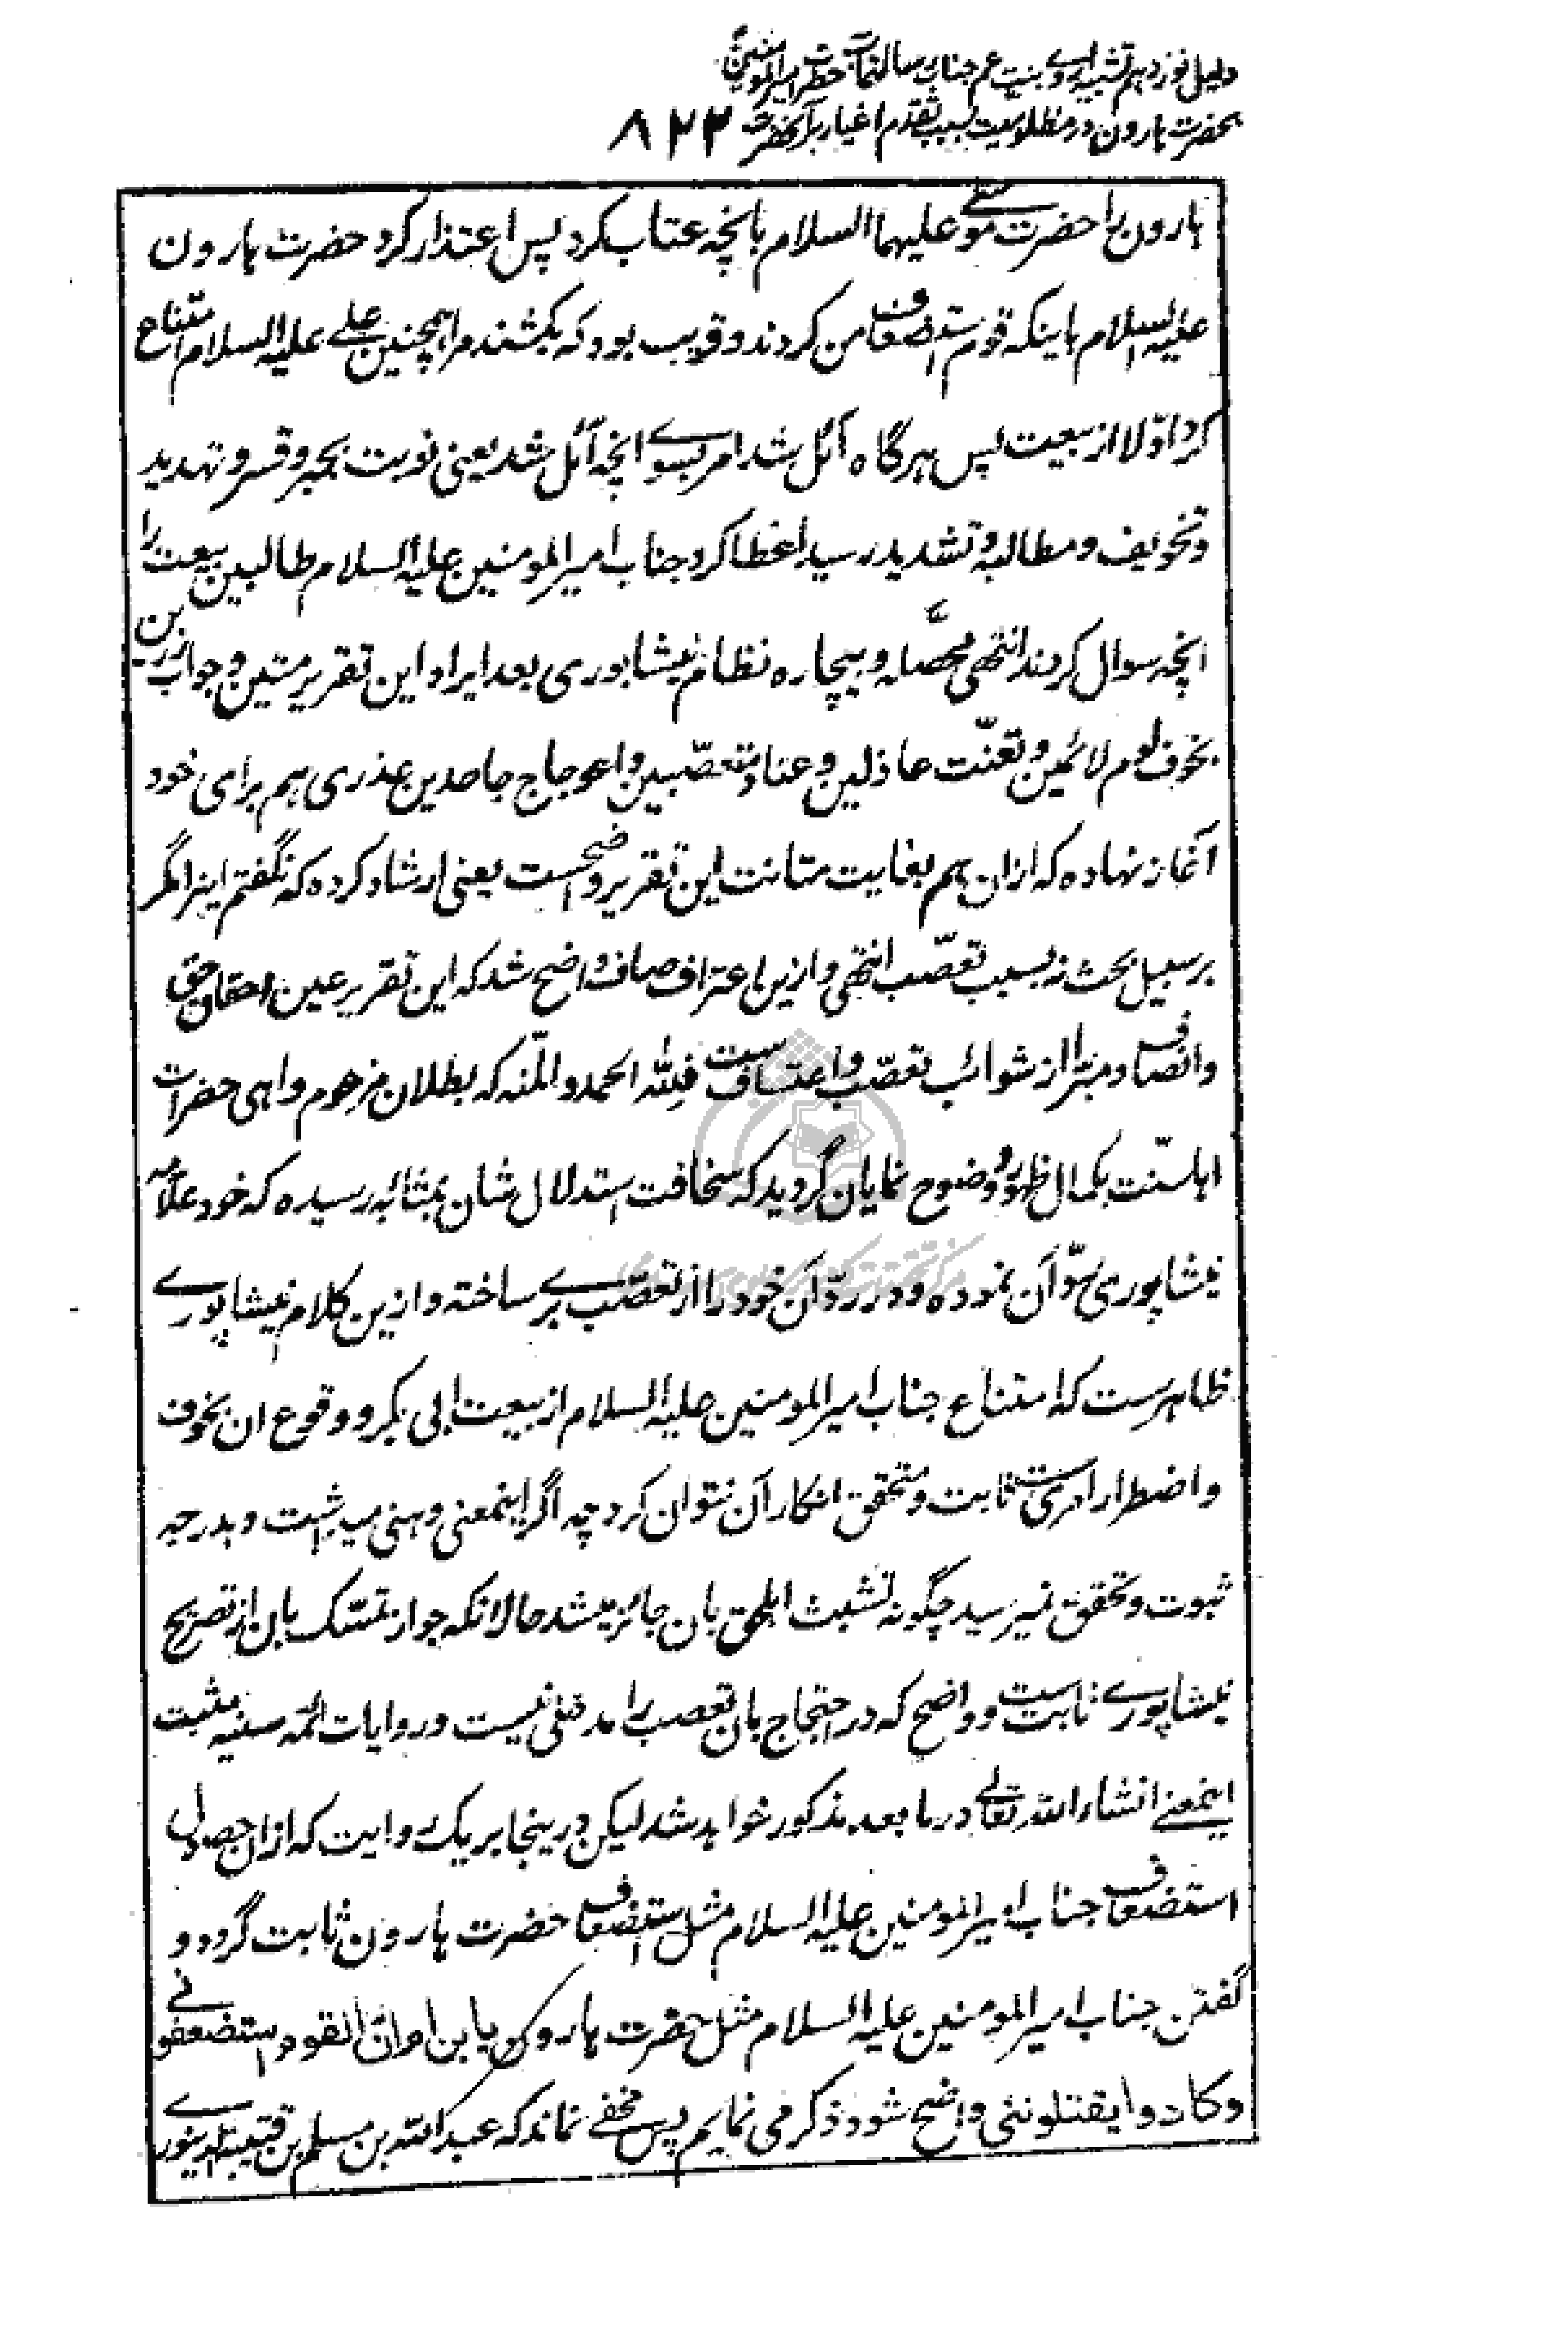 دلیل نوزدهم تشبیه اروی بنت عم جناب رسالتمآب حضرت امیرالمومنین
بحضرت هارون در مظلومیت بسبب تقدم اغیار بر آنحضرت ۸۲۳
هارون را حضرت موسی علیهما السلام بانچه عتاب کرد پس اعتذار کرد حضرت هارون
علیه السلام باینکه قوم استضعاف من کردند و قریب بود که بکشند مرا همچنین علی علیه السلام امتناع
کرد اوّلا از بیعت پس هرگاه آئل شد امر بسوی انچه آئل شد یعنی نوبت بجبر و قسر و تهدید
و تخویف و مطالبه و تشدید رسید اعطا کرد جناب امیرالمومنین علیه السلام طالبین بیعت را
انچه سوال کردند انتهی محصّله و بیچاره نظام نیشابوری بعد ایراد این تقریر متین و جواب رزین
بخوف لوم لائمین و تعنّت عاذلین و عناد متعصّبین و اعوجاج جاحدین عذری هم برای خود
آغاز نهاده که ازان هم بغایت متانت این تقریر واضحست یعنی ارشاد کرده که نگفتم اینرا مگر
بر سبیل بحث نه بسبب تعصّب انتهی و ازین اعتراف صاف واضح شد که این تقریر عین احقاق حق
و انصاف و مبرّا از شوائب تعصّب و اعتساف ست فللّه الحمد و المنّه که بطلان مزعوم واهی حضرات
اهلسنّت بکمال ظهور و وضوح نمایان گردید که سخافت استدلال شان بمثابه رسیده که خود علّامه
نیشاپوری ردّ آن نموده و در ردّ آن خود را از تعصّب بری ساخته و ازین کلام نیشاپوری
ظاهرست که امتناع جناب امیرالمومنین علیه السلام از بیعت ابی بکر و وقوع ان بخوف
و اضطرار امریست ثابت و متحقق انکار آن نتوان کرد چه اگر اینمعنی وهنی میداشت و بدرجه
ثبوت و تحقق نمیرسید چگونه تشبث اهل حق بان جائز میشد حالانکه جواز تمسّک بان از تصریح
نیشاپوری ثابت ست و واضح که در احتجاج بان تعصب را مدخلی نیست و روایات ائمه سنیه مثبت
اینمعنی انشاء الله تعالی در ما بعد مذکور خواهد شد لیکن درینجا بر یک روایت که ازان حصول
استضعاف جناب امیرالمومنین علیه السلام مثل استضعاف حضرت هارون ثابت گردد و
گفتن جناب امیرالمومنین علیه السلام مثل حضرت هارون یا بن ام ان القوم استضعفونی
و کادوا یقتلوننی واضح شود ذکر می نمایم پس مخفی نماند که عبد الله بن مسلم بن قتیبه الدینوری